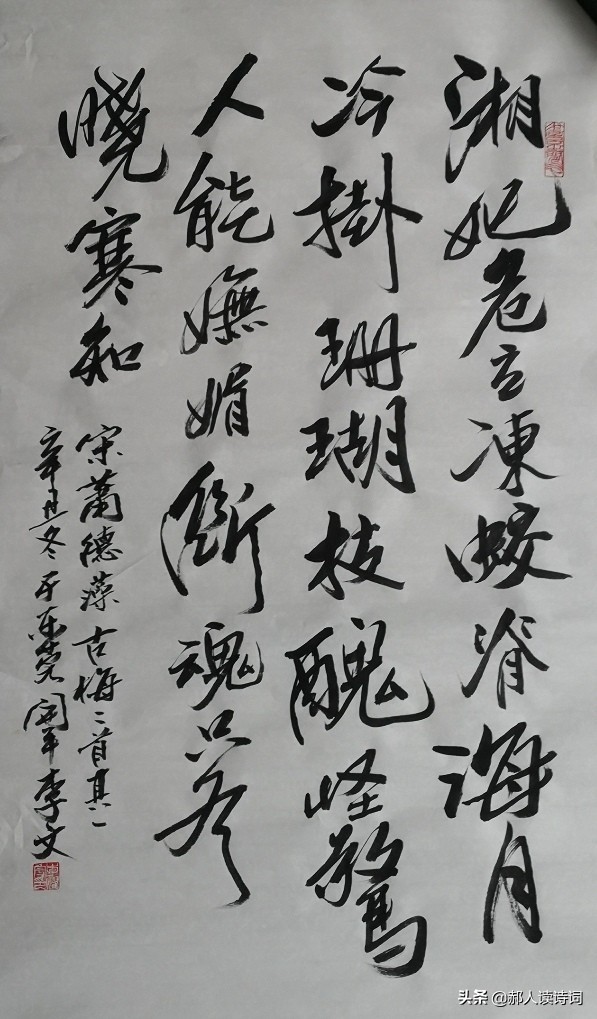 湘妃危立凍蛟脊海月
冷掛珊瑚枝醜怪驚
人能嫵媚斷魂只有
曉寒知
宋蕭德藻古梅二首其一
辛丑冬于东莞李文
头条 @郝人读诗词